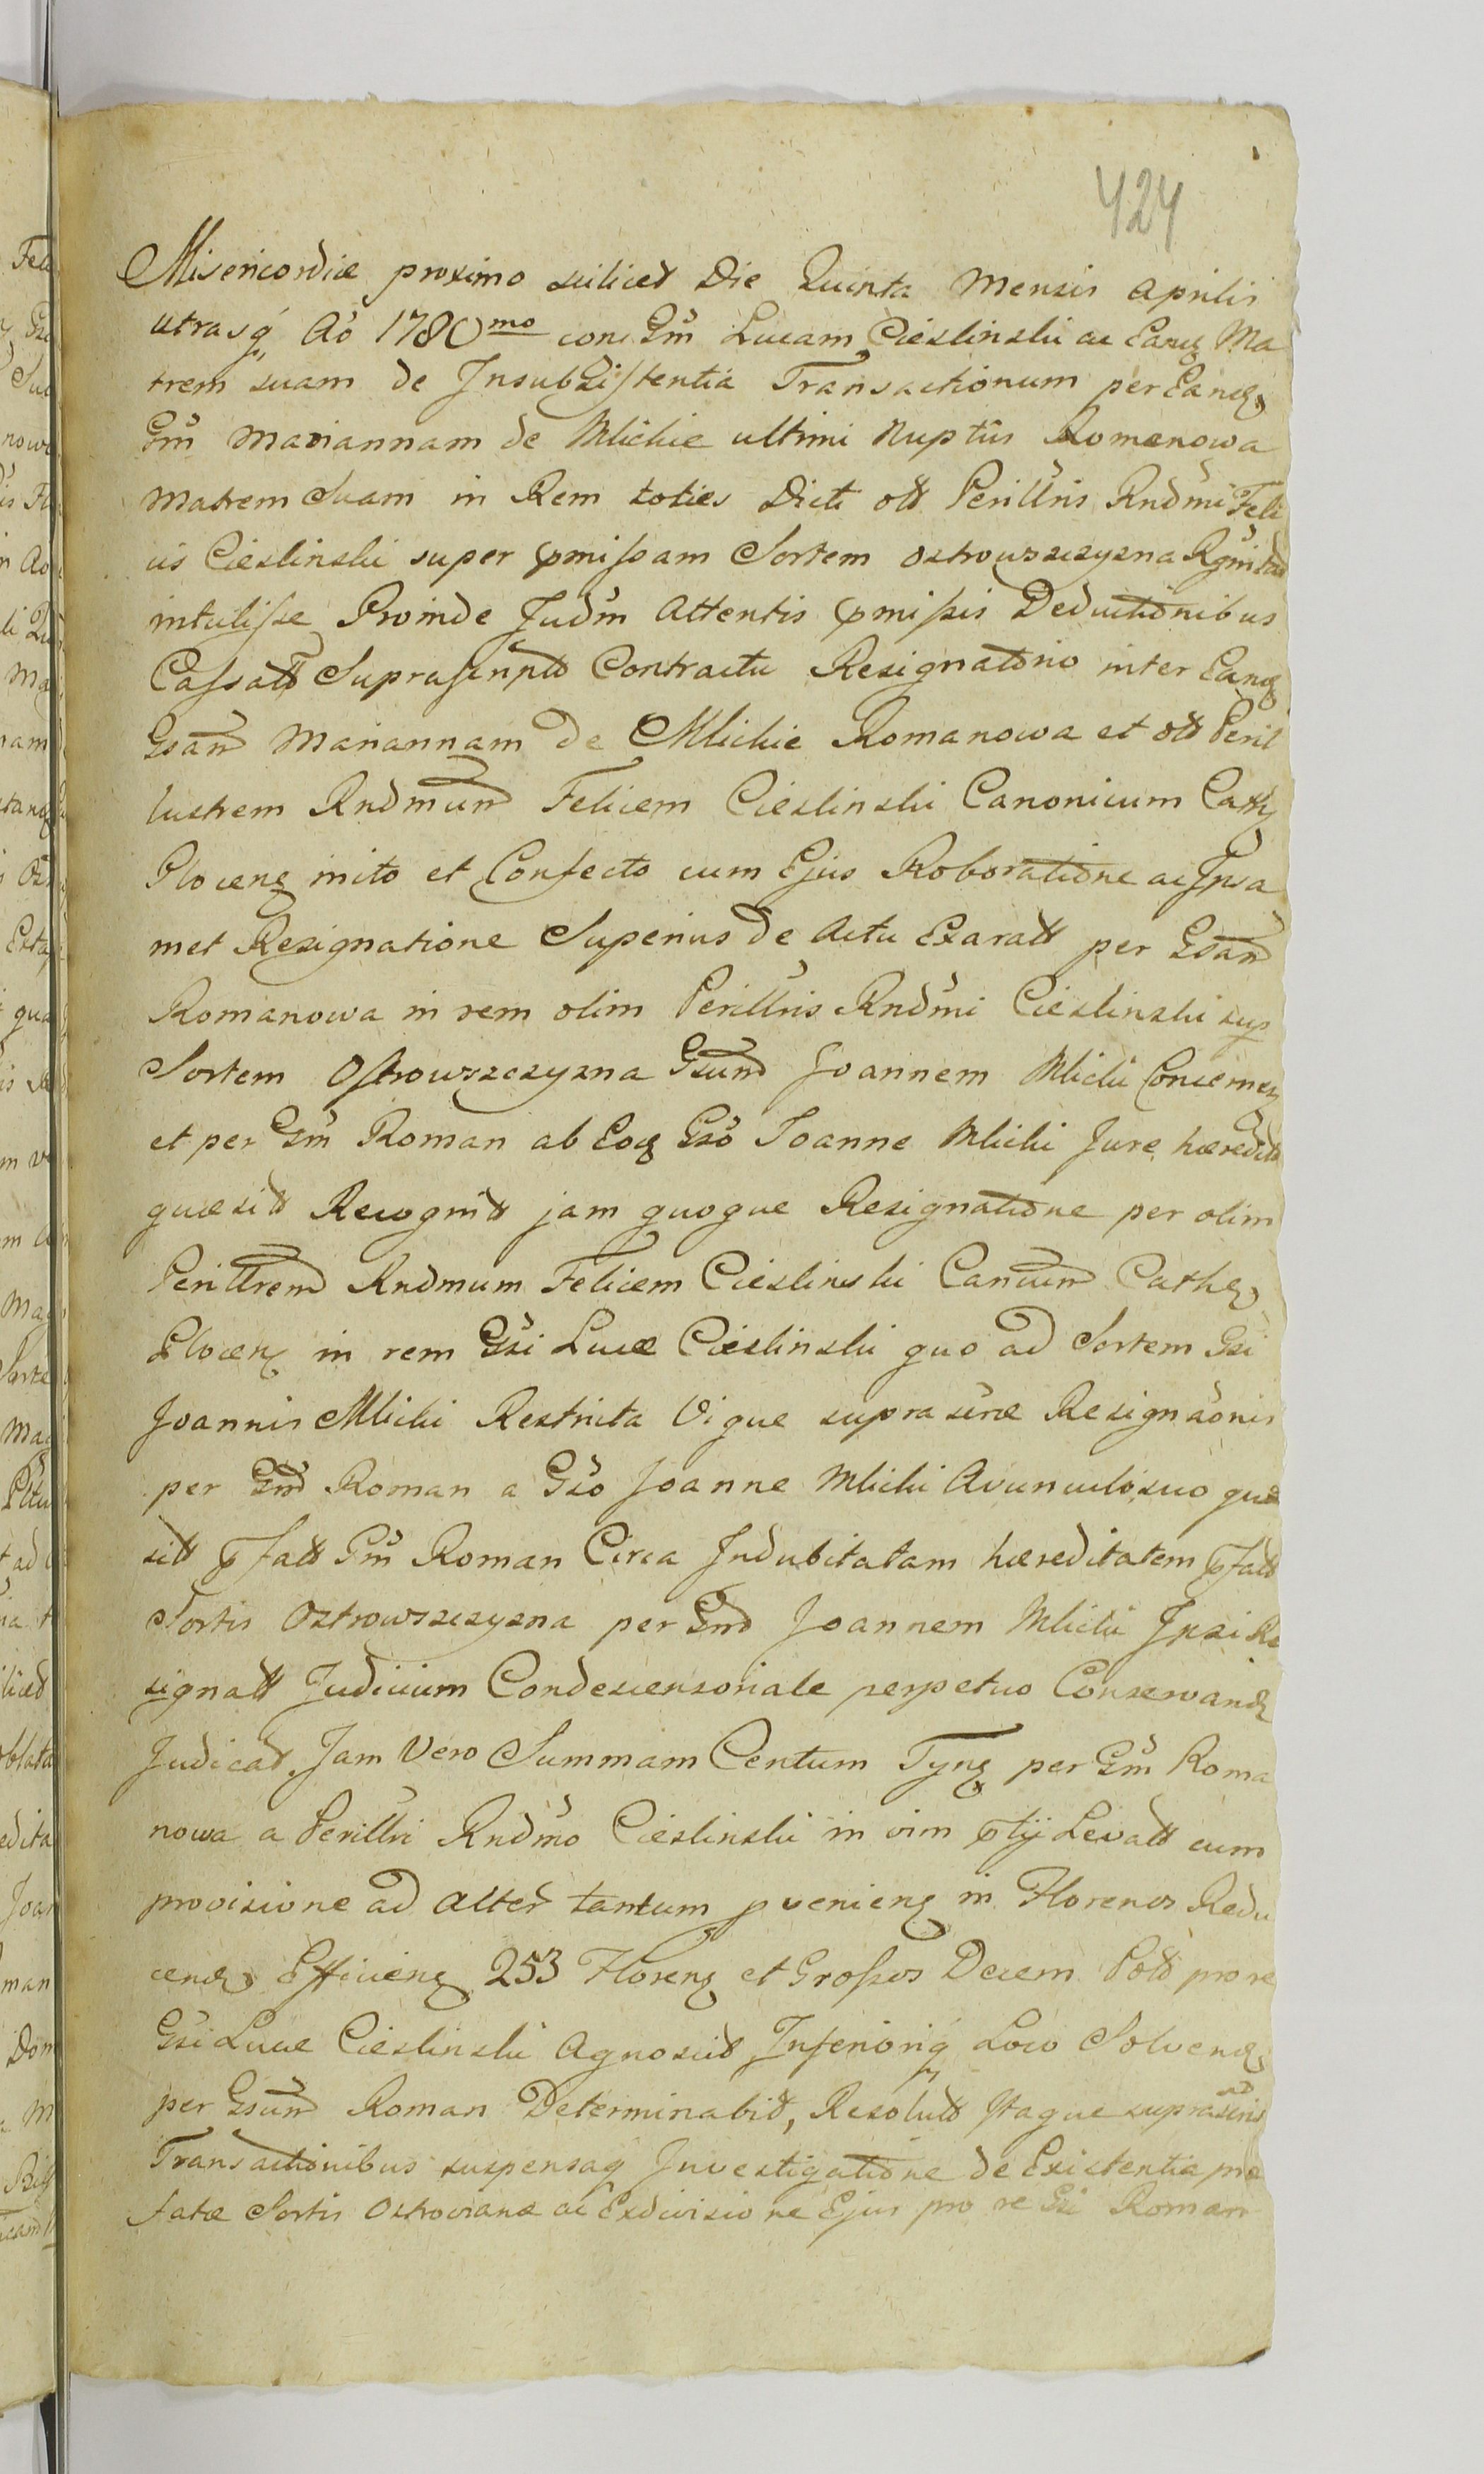 424
Misericordiæ proximo scilicet Die Quinta Mensis Aprilis
utrasq Aõ 1780mo con Gm̃ Lucam Cieslinski ac Eand Ma
trem suam de Insubsistentia Transactionum per Eand
Gm̃ Mariannam de Mlickie ultimi Nuptũs Romanowa
Matrem Suam in Rem toties Dicti ott Perillris Rndm̃i Feli
cis Cieslinski super pmissam Sortem Ostrowszczyzna
intulisse Proinde Judm̃ Attentis pmissis Deductionibus
Cassatt Suprascriptt Contractu Resignatorio inter Eand
Gsam Mariannam de Mlickie Romanowa et ott Peril
lustrem Rndmum Felicem Cieslinski Canonicum Cath
Plocen inito et Confecto cum Ejus Roboratione ac Ipsa
met Resignatione Superius de Actu Exaratt per Gsam
Romanowa in rem olim Perillris Rndm̃i Cieslinski sup
Sortem Ostrowszczyzna Gsum Joannem Mlicki Concernen
et per Gm̃ Roman ab Eod Gsõ Joanne Mlicki Jure hæredit
quæsitt Recognitt jam quoque Resignatione per olim
Perillrem Rndmum Felicem Cieslinski Cancum Cathe
Plocen in rem Gsi Lucæ Cieslinski quo ad Sortem Gsi
Joannis Mlicki Restricta Vique supra scræ Resignaõnis
per Gm̃ Roman a Gsõ Joanne Mlicki Avunculo suo quæ
sitt pfatt Gm̃ Roman Circa Indubitatam hæreditatem pfatt
Sortis Ostrowszczyzna per Gm̃ Joannem Mlicki Ipsi Re
signatt Judicium Condescensoriale perpetuo Conservand
Judicat. Jam Vero Summam Centum Tynf per Gm̃ Roma
nowa a Perillri Rndm̃o Cieslinski in vim ptij Levatt cum
provisione ad alter tantum pvenien in Florenos Redu
cend Efficien 253 Floren et Grossos Decem Polt pro re
Gsi Lucæ Cieslinski Agnoscit Inferioriq Loco Solvend
per Gsum Roman Determinabit, Resolutt Itaque supra scris
Transactionibus suspensaq Investigatione de Existentia præ
fatæ Sortis Ostroviana ac Exdivisione Ejus pro re Gsi Roman